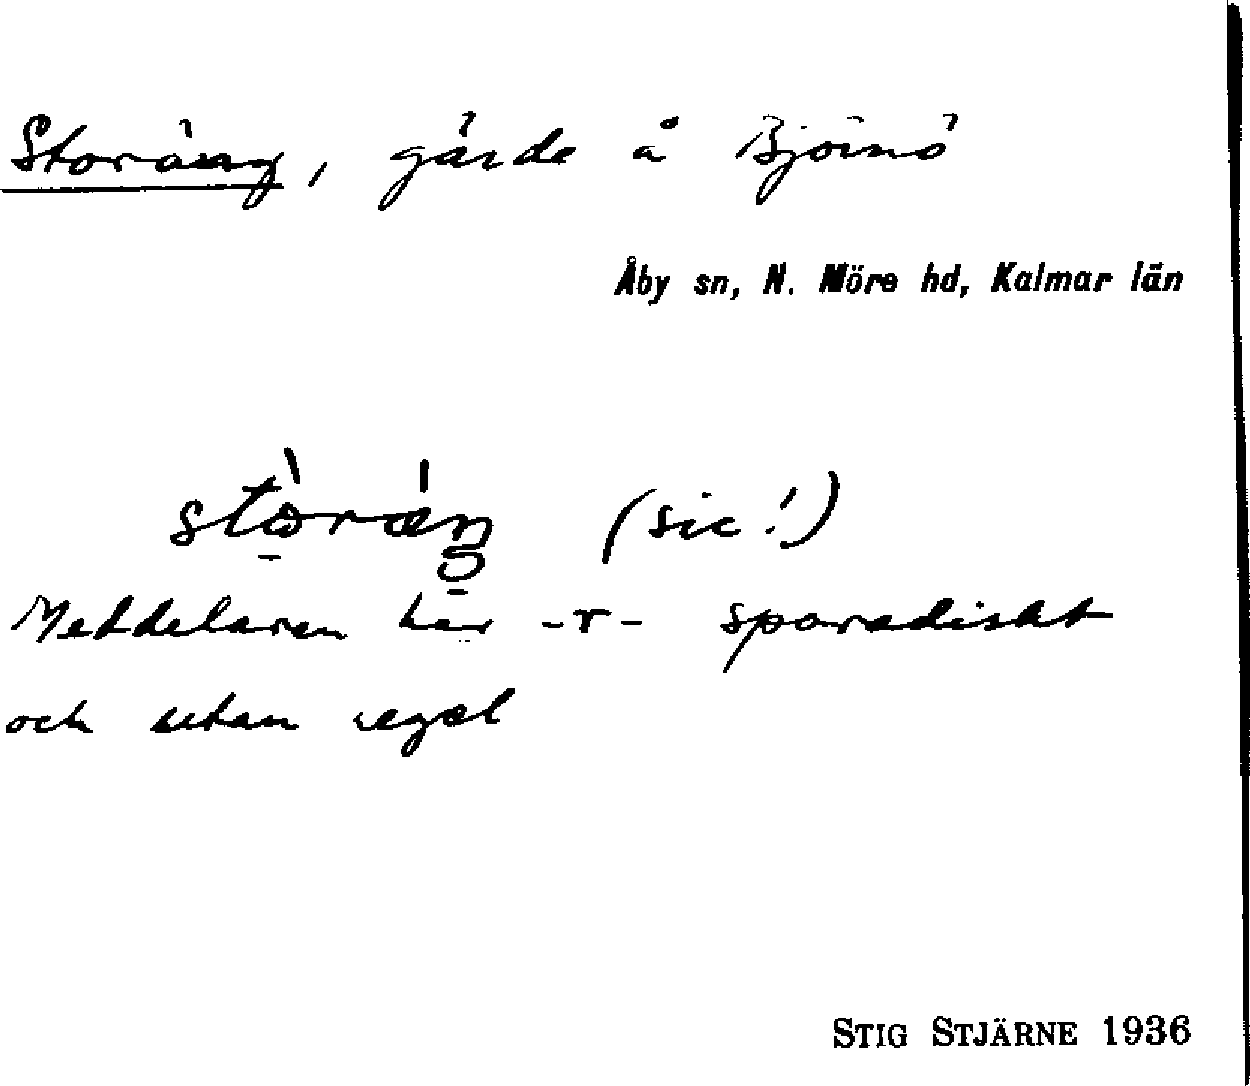 Storäng, gärde å Björnö
Åby sn, N. Möre hd, Kalmar län
stòræŋ (sic!)
Meddelaren har -r- sporadiskt
och utan regel
STIG STJÄRNE 1936